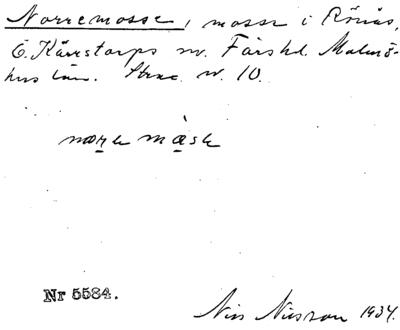 Norremosse, mosse i Rönås,
Ö. Kärrstorps sn. Färs hd. Malmö-
hus län. Skac. nr. 10.
nɶrə måsə
Nr 5584.
Nils Nilsson 1934.